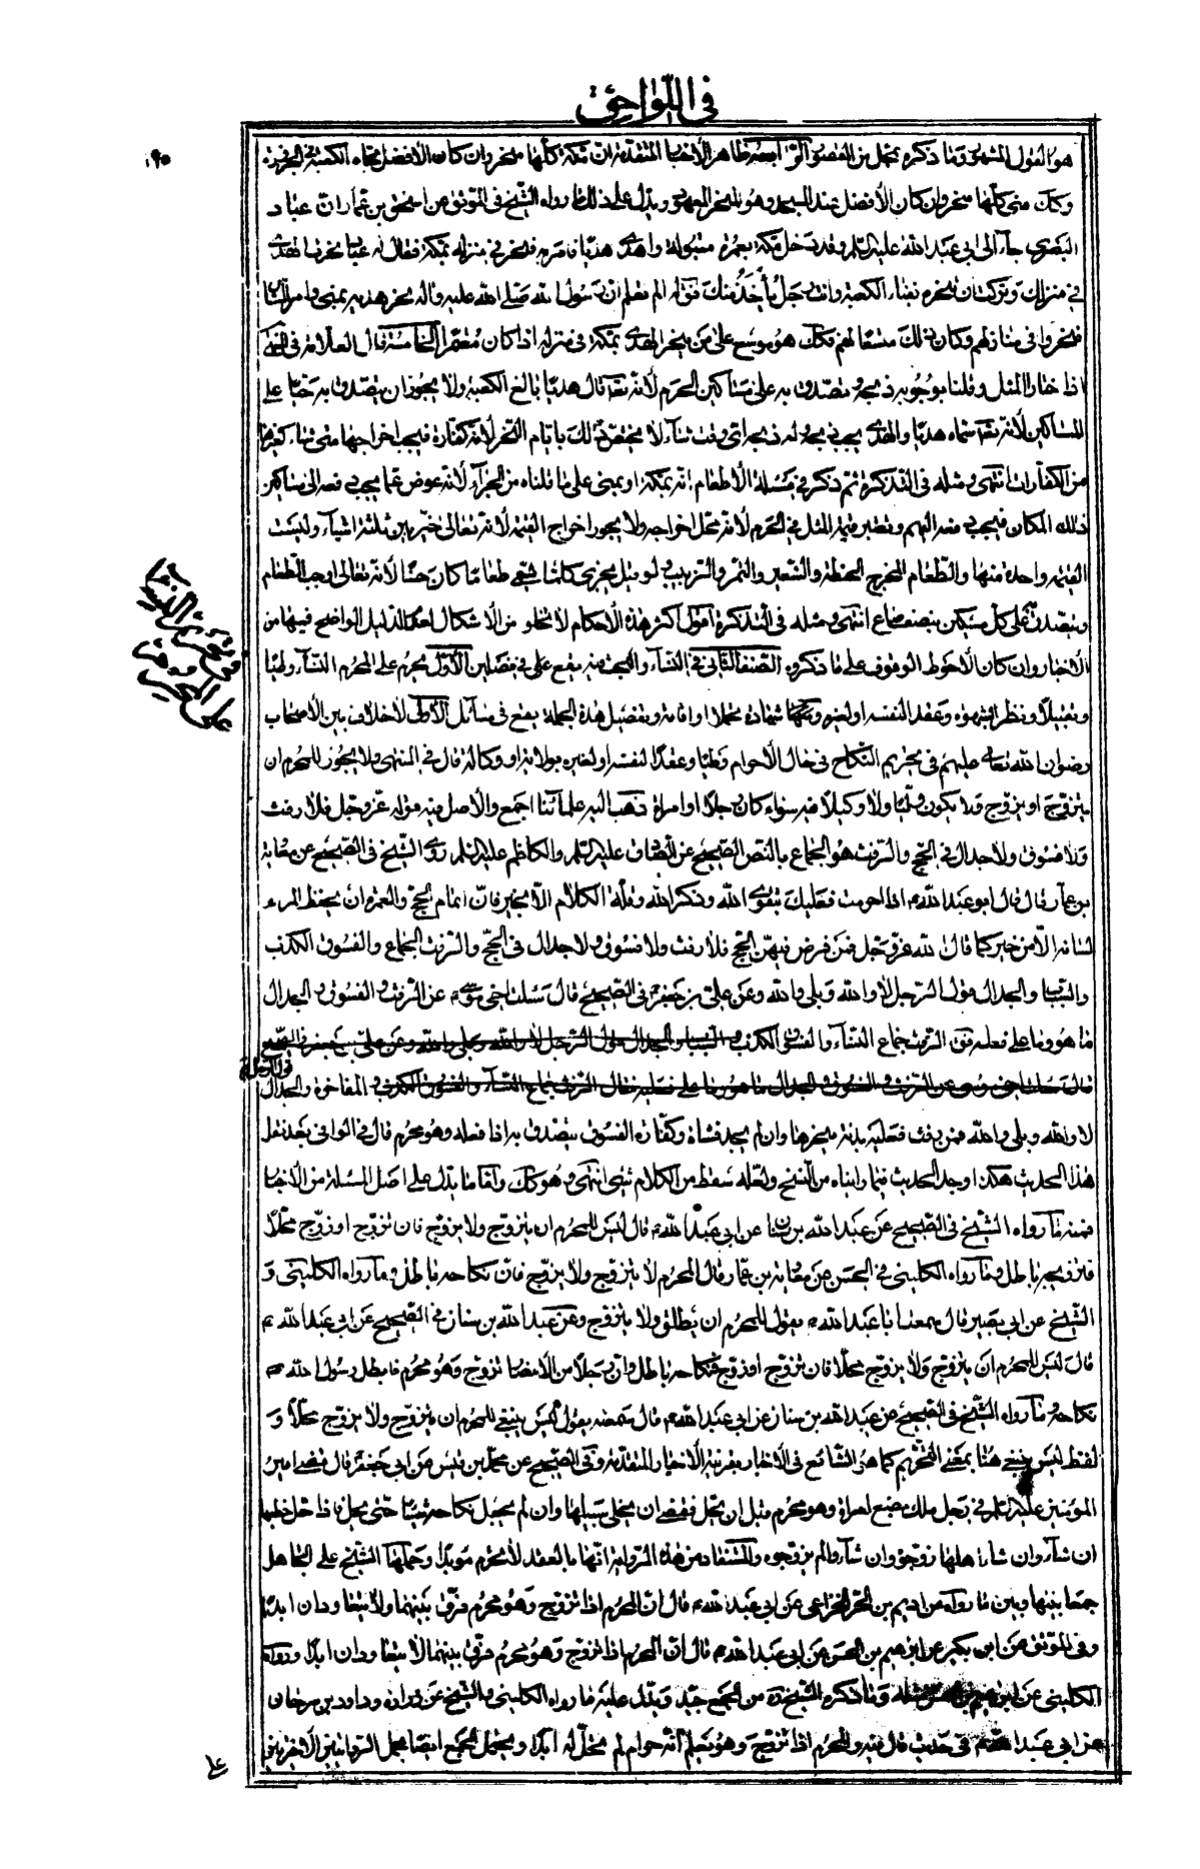 في اللواحق
هو القول المشهور وما ذكره محمل من القصور الرابعة ظاهر الأخبار المتقدمة ان مكة كلها منحر وان كان الافضل تجاه الكعبة في الحزورة
وكك منى كلها منحر وان كان الأفضل عند المسجد وهو المنحر المعهود ويدل على ذلك ما رواه الشيخ في الموثق عن اسحق بن عمار ان عباد
البصري جاء الى ابي عبد الله عليه السلم وقد دخل مكة بعمرة مبتولة واهدى هديا فامر به فنحر في منزله بمكة فقال له عباد نحرت الهدى
في منزلك وتركت ان تنحره بفناء الكعبة وانت رجل يأخذ منك فقال له الم تعلم ان رسول الله صلى الله عليه واله نحر هديه بمنى وامر الناس
فنحروا في منازلهم وكان ذلك متسعا لهم فكك هو موسع على من ينحر الهدى بمكة في منزله اذا كان معتمرا الخامسة قال العلامة في المنتهى
اذا اختار المثل وقلنا بوجوبه ذبحه وتصدق به على مساكين الحرم لانه تعا قال هديا بالغ الكعبة ولا يجوز ان يتصدق به حيا على
المساكين لانه تعا سماه هديا والهدى يجب ذبحه وله ذبحه اي وقت شاء لا يختص ذلك بايام النحر لانه كفارة فيجب اخراجها متى شاء كغيرها
من الكفارات انتهى ومثله في التذكرة ثم ذكر في مسئلة الأطعام انه بمكة او بمنى على ما قلناه من الجزاء لانه عوض عما يجب دفعه الى مساكين
ذلك المكان فيجب دفعه اليهم وتعتبر قيمة المثل في الحرم لانه محل اخراجه ولا يجوز اخراج القيمة لانه تعالى خير بين ثلثة اشياء وليست
القيمة واحدة منها والطعام المخرج الحنطة والشعير والتمر والزبيب ولو قيل يجزي كلما يسمى طعاما كان حسنا لانه تعالى اوجب الطعام
ويتصدق على كل مسكين بنصف صاع انتهى ومثله في التذكرة اقول اكثر هذه الأحكام لا تخلو من الاشكال لعدم الدليل الواضح فيها من
الاخبار وان كان الاحوط الوقوف على ما ذكروه الصنف الثاني في النساء والبحث فيه يقع على فصلين الأول يحرم على المحرم النساء وطيا
وتقبيلا ونظرا بشهوة وعقدا لنفسه او لغيره وشهادة تحملا او اقامة وتفصيل هذه الجملة يقع في مسائل الأولى لا خلاف بين الأصحاب
رضوان الله تعالى عليهم في تحريم النكاح في حال الأحرام وطيا وعقدا لنفسه او لغيره بولاية او وكالة قال في المنتهى ولا يجوز للمحرم ان
يتزوج او يزوج ولا يكون وليا ولا وكيلا فيه سواء كان رجلا او امراة ذهب اليه علمائنا اجمع والاصل فيه قوله عز وجل فلا رفث
ولا فسوق ولا جدال في الحج والرفث هو الجماع بالنص الصحيح عن الصادق عليه السلم والكاظم عليه السلم روى الشيخ في الصحيح عن معاوية
بن عمار قال قال ابو عبد الله ع اذا احرمت فعليك بتقوى الله وذكر الله وقلة الكلام الا بخير فان اتمام الحج والعمرة ان يحفظ المرء
لسانه الا من خير كما قال الله عز وجل فمن فرض فيهن الحج فلا رفث ولا فسوق ولا جدال في الحج والرفث الجماع والفسوق الكذب
والسباب والجدال قول الرجل لا والله وبلى والله وعن علي بن جعفر في الصحيح قال سئلت اخي موسى ع عن الرفث والفسوق والجدال
ما هو وما على فعله فق الرفث جماع النساء والفسوق الكذب
المفاخرة والجدال قول الرجل
لا والله وبلى والله فمن رفث فعليه بدنة ينحرها وان لم يجد فشاة وكفارة الفسوق يتصدق به اذا فعله وهو محرم قال في الوافي بعد نقل
هذا الحديث هكذا وجد الحديث فيما راينا من النسخ ولعله سقط من الكلام شئ انتهى وهو كك واما ما يدل على اصل المسئلة من الأخبار
فمنه ما رواه الشيخ في الصحيح عن عبد الله بن سنان عن ابي عبد الله ع قال ليس للمحرم ان يتزوج ولا يزوج فان تزوج او زوج محلا
فتزويجه باطل وما رواه الكليني في الحسن عن معاوية بن عمار قال المحرم لا يتزوج ولا يزوج فان نكاحه باطل وما رواه الكليني و
الشيخ عن ابي بصير قال سمعت ابا عبد الله ع يقول للمحرم ان يطلق ولا يتزوج وعن عبد الله بن سنان في الصحيح عن ابي عبد الله ع
قال ليس للمحرم ان يتزوج ولا يزوج محلا فان تزوج او زوج فنكاحه باطل وان رجلا من الأنصار تزوج وهو محرم فابطل رسول الله ص
نكاحه وما رواه الشيخ في الصحيح عن عبد الله بن سنان عن ابي عبد الله ع قال سمعته يقول ليس ينبغي للمحرم ان يتزوج ولا يزوج محلا و
لفظ ليس ينبغي هنا بمعنى التحريم كما هو الشائع في الأخبار بقرينة الأخبار المتقدمة وفي الصحيح عن محمد بن قيس عن ابي جعفر ع قال قضى امير
المؤمنين عليه السلم في رجل ملك بضع امراة وهو محرم قبل ان يحل فقضى ان يخلى سبيلها وان لم يجعل نكاحه شيئا حتى يحل فاذا احل خطبها
ان شاء وان شاء اهلها زوجوه وان شاؤا لم يزوجوه والمستفاد من هذه الرواية انها بالعقد لا تحرم مؤبدا وحملها الشيخ على الجاهل
جمعا بينها وبين ما رواه عن اديم بن الحر الخزاعي عن ابي عبد الله ع قال ان المحرم اذا تزوج وهو محرم فرق بينهما ولا يتعاودان ابدا
وفي الموثق عن ابن بكير عن ابرهيم بن الحسن عن ابي عبد الله ع قال ان المحرم اذا تزوج وهو محرم فرق بينهما ثم لا يتعاودان ابدا ورواه
الكليني عن وما ذكره الشيخ ره من الجمع جيد ويدل عليه ما رواه الكليني والشيخ عن زرارة وداود بن سرحان
عن ابي عبد الله ع في حديث قال فيه والمحرم اذا تزوج وهو يعلم انه حرام لم تحل له ابدا ويحتمل الجمع ايضا بحمل الروايتين الأخيرتين
على